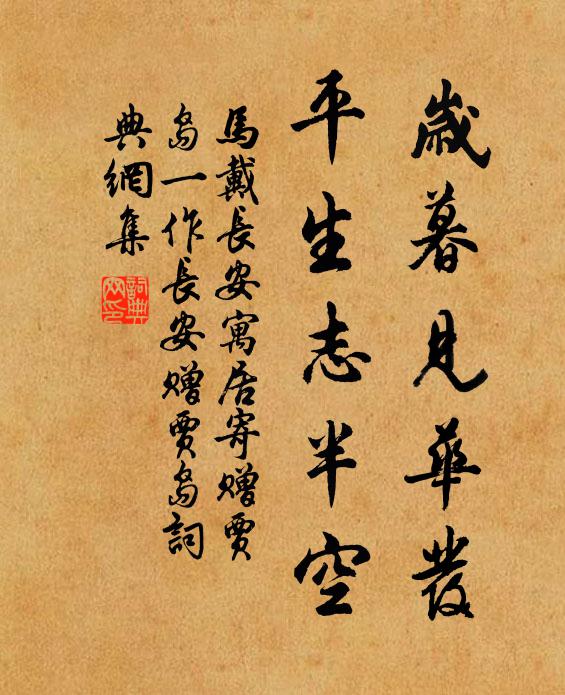 歲暮見華發
平生志半空
馬戴長安寓居寄贈賈
島一作長安贈賈島詞
典網集
詞典
網印